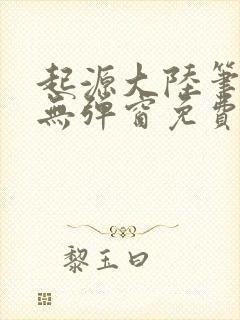 起源大陸筆
無彈窗免費
黎玉曰